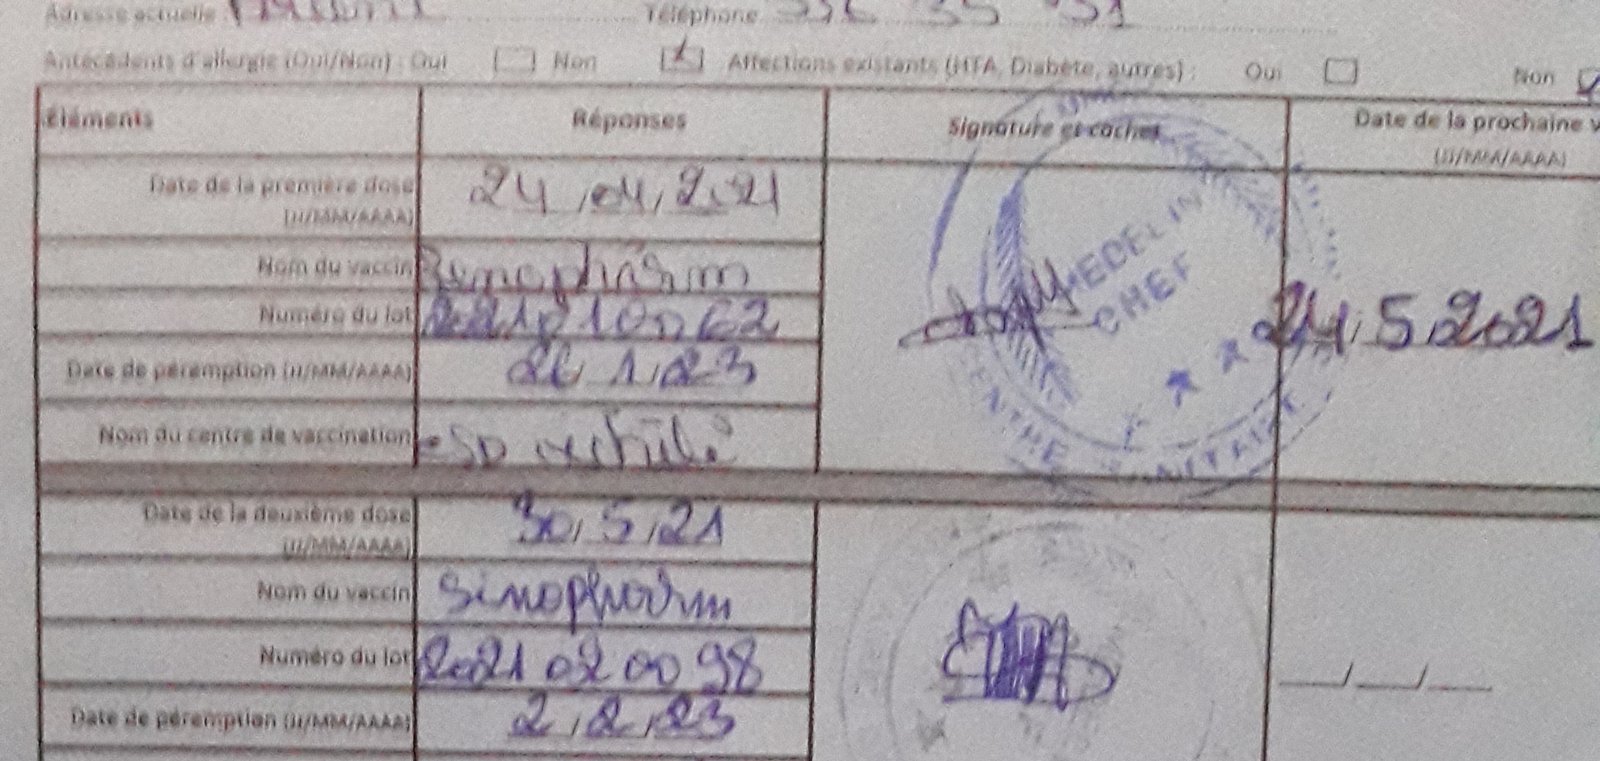 Adresse actuelle
Téléphone
Antécédents d'allergie (Oui/Non) : Oui Non Affections existants (HTA, Diabète, autres) : Oui Non
Éléments Réponses Signature et cachet Date de la prochaine
(JJ/MM/AAAA)
Date de la première dose 24, 04, 2021
(JJ/MM/AAAA)
Nom du vaccin
Numéro du lot
24, 5, 2021
Date de péremption (JJ/MM/AAAA) 1, 23
Nom du centre de vaccination
MEDECIN
CHEF
CENTRE SANITAIRE
Date de la deuxième dose 30, 5, 21
(JJ/MM/AAAA)
Nom du vaccin Sinopharm
Numéro du lot 2021 02 00 98
Date de péremption (JJ/MM/AAAA) 2, 2, 23